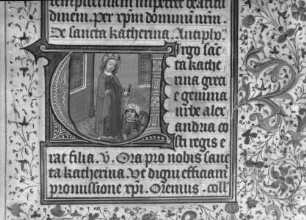 dinem. per xpm dominum nrm
De sancta katherina. Antiph
Virgo sanc
ta kathe
rina grec
e gemma
urbe alex
andria co
sti regis e
rat filia. v. Ora pro nobis sanc
ta katherina. Ut digni efficiam
promissione xpi. Oremus. coll